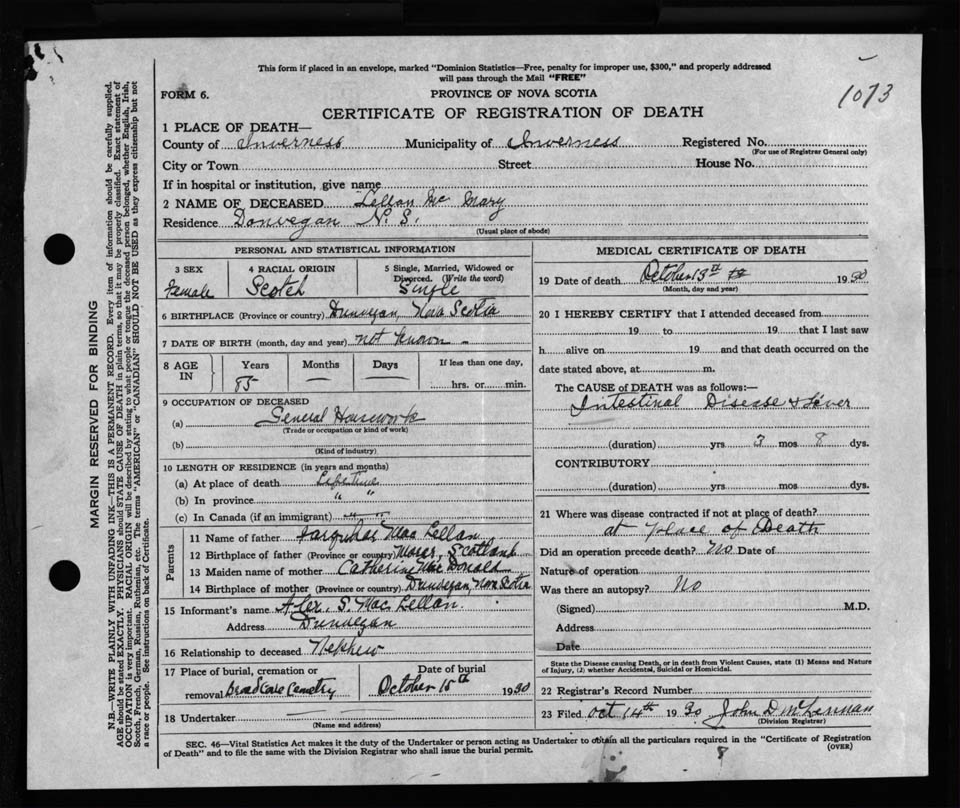 1073
This form if placed in an envelope, marked "Dominion Statistics—Free, penalty for improper use, $300," and properly addressed
will pass through the Mail "FREE"
FORM 6.
PROVINCE OF NOVA SCOTIA
CERTIFICATE OF REGISTRATION OF DEATH
1 PLACE OF DEATH—
County of Inverness Municipality of Inverness Registered No.
(For use of Registrar General only)
City or Town Street House No.
If in hospital or institution, give name
2 NAME OF DECEASED Lellan Mc Mary
Residence Donvegan N. S.
(Usual place of abode)
PERSONAL AND STATISTICAL INFORMATION
3 SEX 4 RACIAL ORIGIN 5 Single, Married, Widowed or
Divorced. (Write the word)
Female Scotch Single
6 BIRTHPLACE (Province or country) Dunvegan, Nova Scotia
7 DATE OF BIRTH (month, day and year) not known
8 AGE IN Years Months Days If less than one day,
85 — — hrs. or min.
9 OCCUPATION OF DECEASED
(a) General Housework
(Trade or occupation or kind of work)
(b)
(Kind of industry)
10 LENGTH OF RESIDENCE (in years and months)
(a) At place of death Lifetime
(b) In province " "
(c) In Canada (if an immigrant) " "
Parents
11 Name of father Farquhar Mac Lellan
12 Birthplace of father (Province or country) Morar, Scotland
13 Maiden name of mother Catherine Mac Donald
14 Birthplace of mother (Province or country) Dunvegan, Nova Scotia
15 Informant's name Alex. S. Mac Lellan.
Address Dunvegan
16 Relationship to deceased Nephew
17 Place of burial, cremation or Date of burial
removal Broad Cove Cemetry October 15th 1930
18 Undertaker — —
(Name and address)
MEDICAL CERTIFICATE OF DEATH
19 Date of death October 13th 1930
(Month, day and year)
20 I HEREBY CERTIFY that I attended deceased from
19 to 19 that I last saw
h alive on 19 and that death occurred on the
date stated above, at m.
The CAUSE of DEATH was as follows:—
Intestinal Disease & Liver
(duration) yrs 3 mos 8 dys.
CONTRIBUTORY
(duration) yrs. mos dys.
21 Where was disease contracted if not at place of death?
at place of Death
Did an operation precede death? No Date of
Nature of operation
Was there an autopsy? No
(Signed) M.D.
Address
Date
State the Disease causing Death, or in death from Violent Causes, state (1) Means and Nature
of Injury, (2) whether Accidental, Suicidal or Homicidal.
22 Registrar's Record Number
23 Filed Oct 14th 1930 John D McLennan
(Division Registrar)
SEC. 46—Vital Statistics Act makes it the duty of the Undertaker or person acting as Undertaker to obtain all the particulars required in the "Certificate of Registration
of Death" and to file the same with the Division Registrar who shall issue the burial permit.
(OVER)
8
MARGIN RESERVED FOR BINDING
N.B.—WRITE PLAINLY WITH UNFADING INK—THIS IS A PERMANENT RECORD. Every item of information should be carefully supplied.
AGE should be stated EXACTLY. PHYSICIANS should STATE CAUSE OF DEATH in plain terms, so that it may be properly classified. Exact statement of
OCCUPATION is very important. RACIAL ORIGIN will be described by stating to what people or tongue the deceased person belonged, whether English, Irish,
Scotch, French, German, Russian, Ruthenian, etc. The terms "AMERICAN" or "CANADIAN" SHOULD NOT BE USED as they express citizenship but not
a race or people. See instructions on back of Certificate.